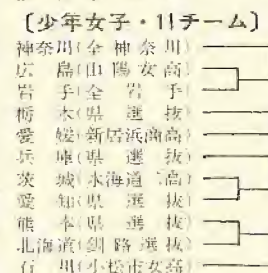 〔少年女子・11チーム〕
神奈川(全神奈川)
広島(山陽女高)
岩手(全岩手)
栃木(県選抜)
愛媛(新居浜商高)
兵庫(県選抜)
茨城(水海道二高)
愛知(県選抜)
熊本(県選抜)
北海道(釧路選抜)
石川(小松市女高)